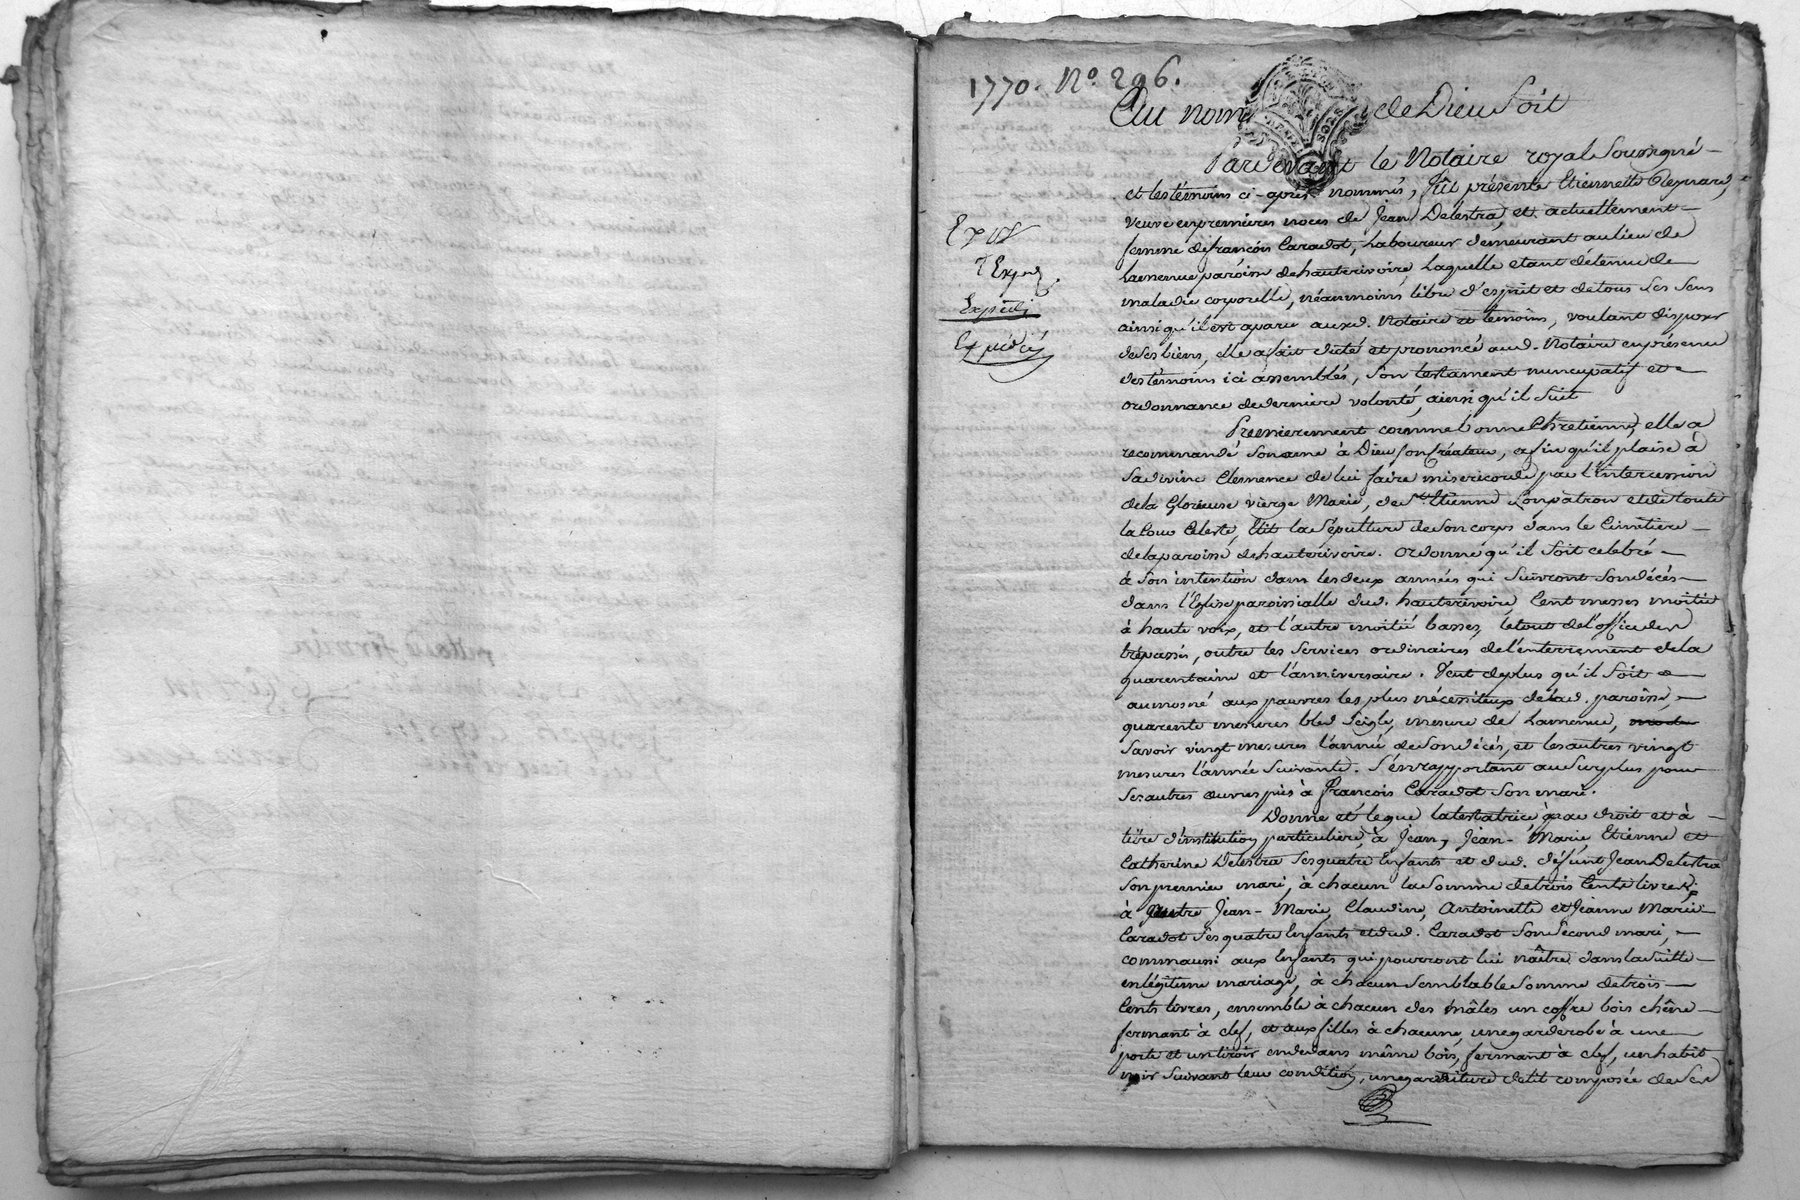 1770. N.º 296.
Au nom de Dieu Soit
Pardevant le Notaire royal Soussigné
et les témoins ci-après nommés, fût présente Etiennette
veuve en premieres noces de Jean Delestra, et actuellement
femme de francois Caradot, Laboureur demeurant au lieu de
Lamenue paroisse de hauterivoire Laquelle etant détenue de
maladie corporelle, néanmoins libre d'esprit et de tous Ses Sens
ainsi qu'il est aparu auxd. Notaire et temoins, voulant disposer
de Ses biens, elle a fait dicté et prononcé aud. Notaire en présence
des témoins ici assemblés, Son testament nuncupatif et
ordonnance de derniere volonté, ainsi qu'il Suit
Premierement comme bonne Chretienne, elle a
recommandé Son ame à Dieu Son Créateur, afin qu'il plaise à
Sa divine Clemence de lui faire misericorde par l'intercession
de la Glorieuse vierge Marie, de St. Etienne Son patron et de toute
la Cour Celeste, Elit la Sépulture de Son corps dans le Cimetiere
de la paroisse de hauterivoire. Ordonne qu'il Soit celebré
à Son intention dans les deux années qui Suivront Son décès
dans l'Eglise paroissialle dud. hauterivoire, Cent messes moitié
à haute voix, et l'autre moitié basses, le tout de l'office des
trépassés, outre les Services ordinaires de l'enterrement de la
quarentaine et l'anniversaire. Veut de plus qu'il Soit
aumosné aux pauvres les plus nécessiteux de lad. paroisse,
quarente mesures bled Seigle, mesure de Lamenue,
Savoir vingt mesures l'année de Son décès, et les autres vingt
mesures l'année Suivante. S'en rapportant au Surplus pour
Ses autres œuvres pies à François Caradot Son mari.
Donne et legue la testatrice par droit et à
titre d'institution particuliere, à Jean, Jean-Marie, Etienne et
Catherine Delestra Ses quatre Enfants et dud. défunt Jean Delestra
Son premier mari, à chacun la Somme de trois Cents livres,
à Jean-Marie, Claudine, Antoinette et Jeanne Marie
Caradot Ses quatre Enfants et dud. Caradot Son Second mari,
comm'aussi aux Enfants qui pourront lui naître dans la Suitte
en légitime mariage, à chacun Semblable Somme de trois
Cents livres, ensemble à chacun des mâles un coffre bois chêne
fermant à clef, et aux filles à chacune, une garderobe à une
porte et un tiroir en dedans même bois, fermant à clef, un habit
noir Suivant leur condition, une garniture de lit composée de Ses
Expédié
Expédié